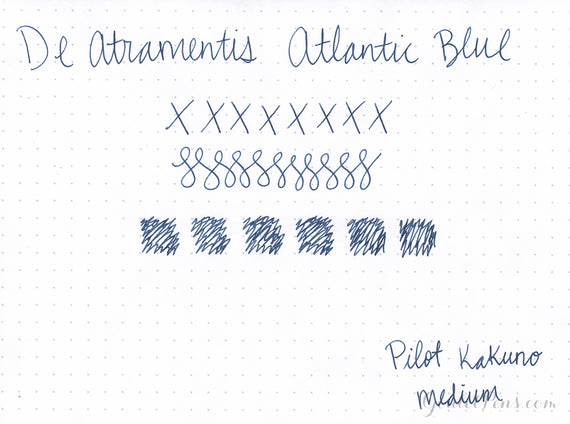 De Atramentis Atlantic Blue
X X X X X X X X
Pilot Kakuno
medium
GouletPens.com